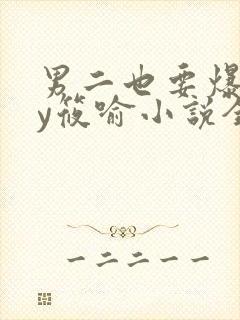 男二也要爆
y筱喻小说全
一二二一一